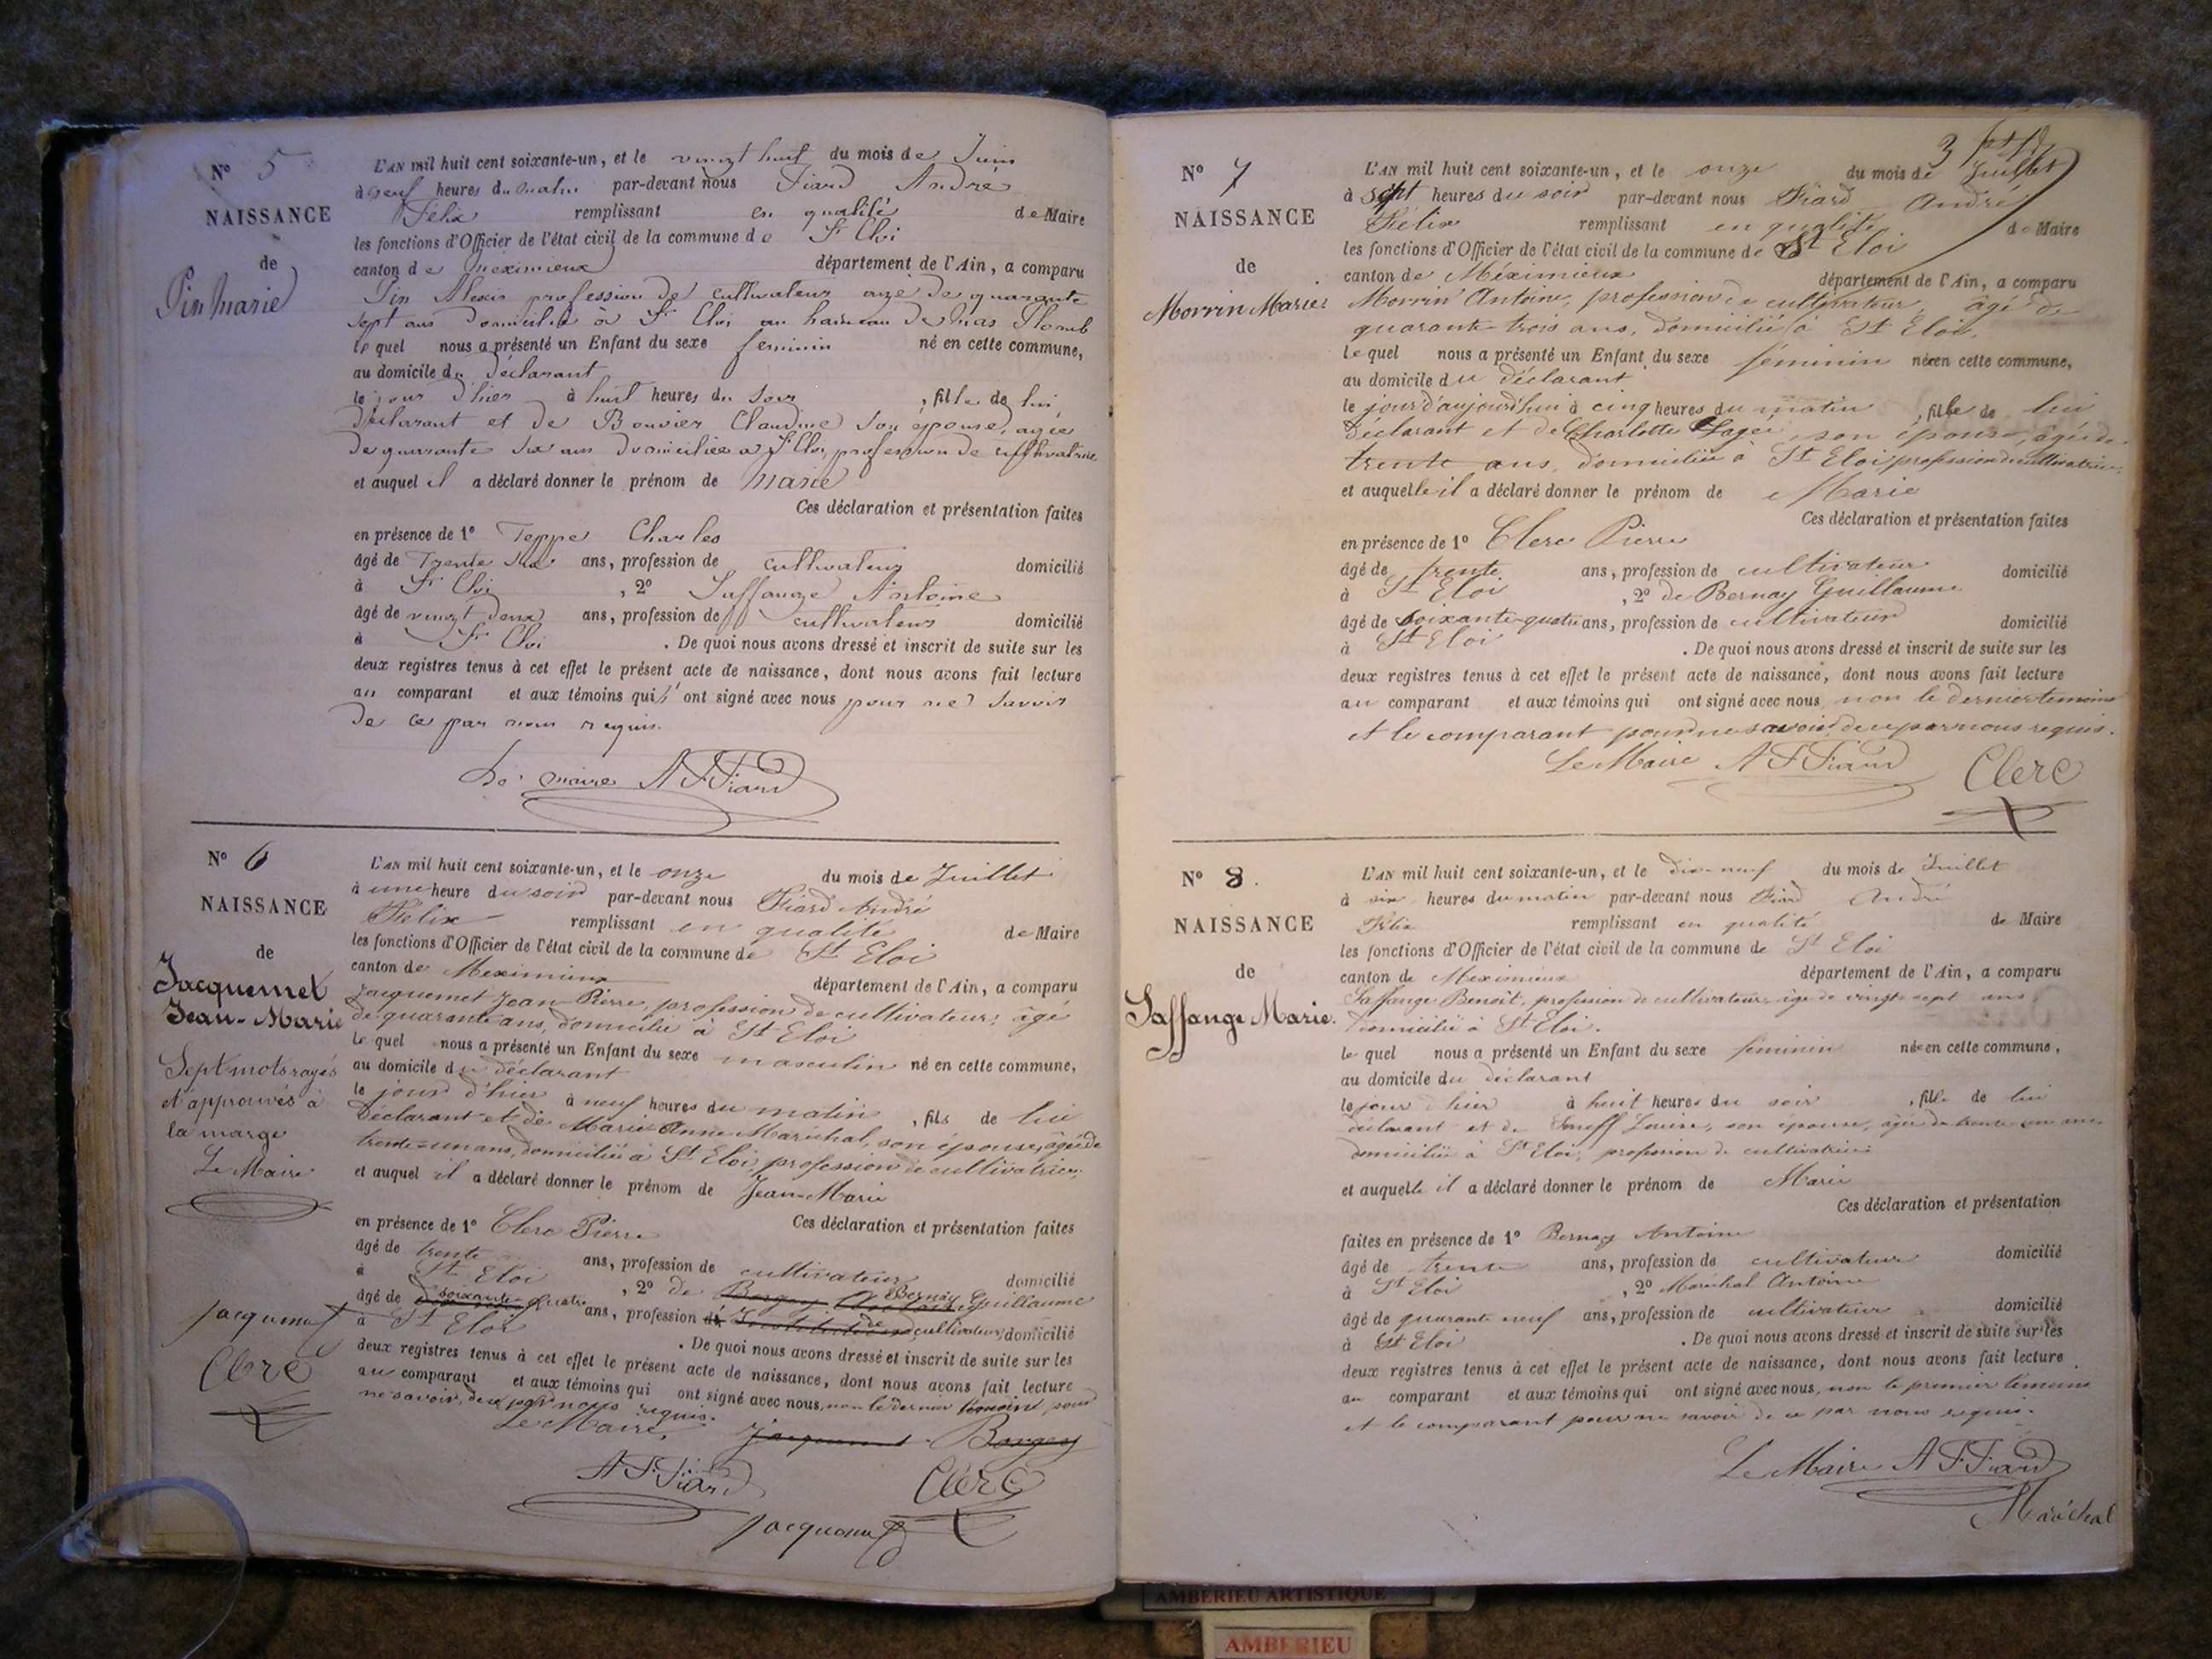 N° 5
NAISSANCE
de
Pin Marie
L'AN mil huit cent soixante-un, et le vingt huit du mois de Juin
à neuf heures du matin par-devant nous Fiard André
Félix remplissant en qualité de Maire
les fonctions d'Officier de l'état civil de la commune de St Eloi
canton de Meximieux département de l'Ain, a comparu
Pin Alexis profession de cultivateur age de quarante
sept ans domicilié à St Eloi au hameau de mas Plomb
lequel nous a présenté un Enfant du sexe feminin né en cette commune,
au domicile du Déclarant
le jour d'hier à huit heures du soir, fille de lui
déclarant et de Bouvier Claudine son épouse, agée
de quarante six ans domiciliée à St Eloi, profession de cultivatrice
et auquel il a déclaré donner le prénom de Marie
Ces déclaration et présentation faites
en présence de 1° Teppe Charles
âgé de Trente six ans, profession de cultivateur domicilié
à St Eloi, 2° Saffange Antoine
âgé de vingt deux ans, profession de cultivateur domicilié
à St Eloi. De quoi nous avons dressé et inscrit de suite sur les
deux registres tenus à cet effet le présent acte de naissance, dont nous avons fait lecture
au comparant et aux témoins qui n'ont signé avec nous pour ne savoir
de ce par nous requis.
Le maire AFFiard
N° 6
NAISSANCE
de
Jacquemet
Jean-Marie
Sept mots rayés
et approuvés à
la marge
Le Maire
Jacquemet
Clerc
L'AN mil huit cent soixante-un, et le onze du mois de Juillet
à une heure du soir par-devant nous Fiard André
Félix remplissant en qualité de Maire
les fonctions d'Officier de l'état civil de la commune de St Eloi
canton de Meximieux département de l'Ain, a comparu
Jacquemet Jean-Pierre, profession de cultivateur, âgé
de quarante ans, domicilié à St Eloi
lequel nous a présenté un Enfant du sexe masculin né en cette commune,
au domicile du déclarant
le jour d'hier à neuf heures du matin, fils de lui
déclarant et de Marie Anne Maréchal, son épouse, agée de
trente-un ans, domiciliée à St Eloi, profession de cultivatrice,
et auquel il a déclaré donner le prénom de Jean-Marie
Ces déclaration et présentation faites
en présence de 1° Clerc Pierre
âgé de trente ans, profession de cultivateur domicilié
à St Eloi, 2° de Bernay Guillaume
âgé de soixante-quatre ans, profession de cultivateur domicilié
à St Eloi. De quoi nous avons dressé et inscrit de suite sur les
deux registres tenus à cet effet le présent acte de naissance, dont nous avons fait lecture
au comparant et aux témoins qui ont signé avec nous, non le dernier témoin pour
ne savoir, de ce par nous requis.
Le Maire, Jacquemet Borgey
AFFiard Clerc
Jacquemet
3
N° 7
NAISSANCE
de
Morrin Marie
L'AN mil huit cent soixante-un, et le onze du mois de Juillet
à sept heures du soir par-devant nous Fiard André
Félix remplissant en qualité de Maire
les fonctions d'Officier de l'état civil de la commune de St Eloi
canton de Méximieux département de l'Ain, a comparu
Morrin Antoine, profession de cultivateur, âgé de
quarante-trois ans, domicilié à St Eloi,
lequel nous a présenté un Enfant du sexe féminin née en cette commune,
au domicile du déclarant
le jour d'aujourd'hui à cinq heures du matin, fille de lui
déclarant et de Charlotte son épouse, âgée de
trente ans, domiciliée à St Eloi, profession de cultivatrice,
et auquelle il a déclaré donner le prénom de Marie
Ces déclaration et présentation faites
en présence de 1° Clerc Pierre
âgé de trente ans, profession de cultivateur domicilié
à St Eloi, 2° de Bernay Guillaume
âgé de soixante-quatre ans, profession de cultivateur domicilié
à St Eloi. De quoi nous avons dressé et inscrit de suite sur les
deux registres tenus à cet effet le présent acte de naissance, dont nous avons fait lecture
au comparant et aux témoins qui ont signé avec nous, non le dernier temoins
et le comparant pour ne savoir, de ce par nous requis.
Le Maire AFFiard Clerc
N° 8.
NAISSANCE
de
Saffange Marie.
L'AN mil huit cent soixante-un, et le dix-neuf du mois de Juillet
à six heures du matin par-devant nous Fiard André
Félix remplissant en qualité de Maire
les fonctions d'Officier de l'état civil de la commune de St Eloi
canton de Meximieux département de l'Ain, a comparu
Saffange Benoit, profession de cultivateur, âgé de vingt-sept ans,
domicilié à St Eloi.
lequel nous a présenté un Enfant du sexe féminin née en cette commune,
au domicile du déclarant
le jour d'hier à huit heures du soir, fille de lui
déclarant et de Louise, son épouse, âgée de trente-un ans,
domiciliée à St Eloi, profession de cultivatrice
et auquelle il a déclaré donner le prénom de Marie
Ces déclaration et présentation
faites en présence de 1° Bernay Antoine
âgé de trente ans, profession de cultivateur domicilié
à St Eloi, 2° Maréchal Antoine
âgé de quarante-neuf ans, profession de cultivateur domicilié
à St Eloi. De quoi nous avons dressé et inscrit de suite sur les
deux registres tenus à cet effet le présent acte de naissance, dont nous avons fait lecture
au comparant et aux témoins qui ont signé avec nous, non le premier témoins
et le comparant pour ne savoir de ce par nous requis.
Le Maire AFFiard
Maréchal
AMBERIEU ARTISTIQUE
AMBERIEU